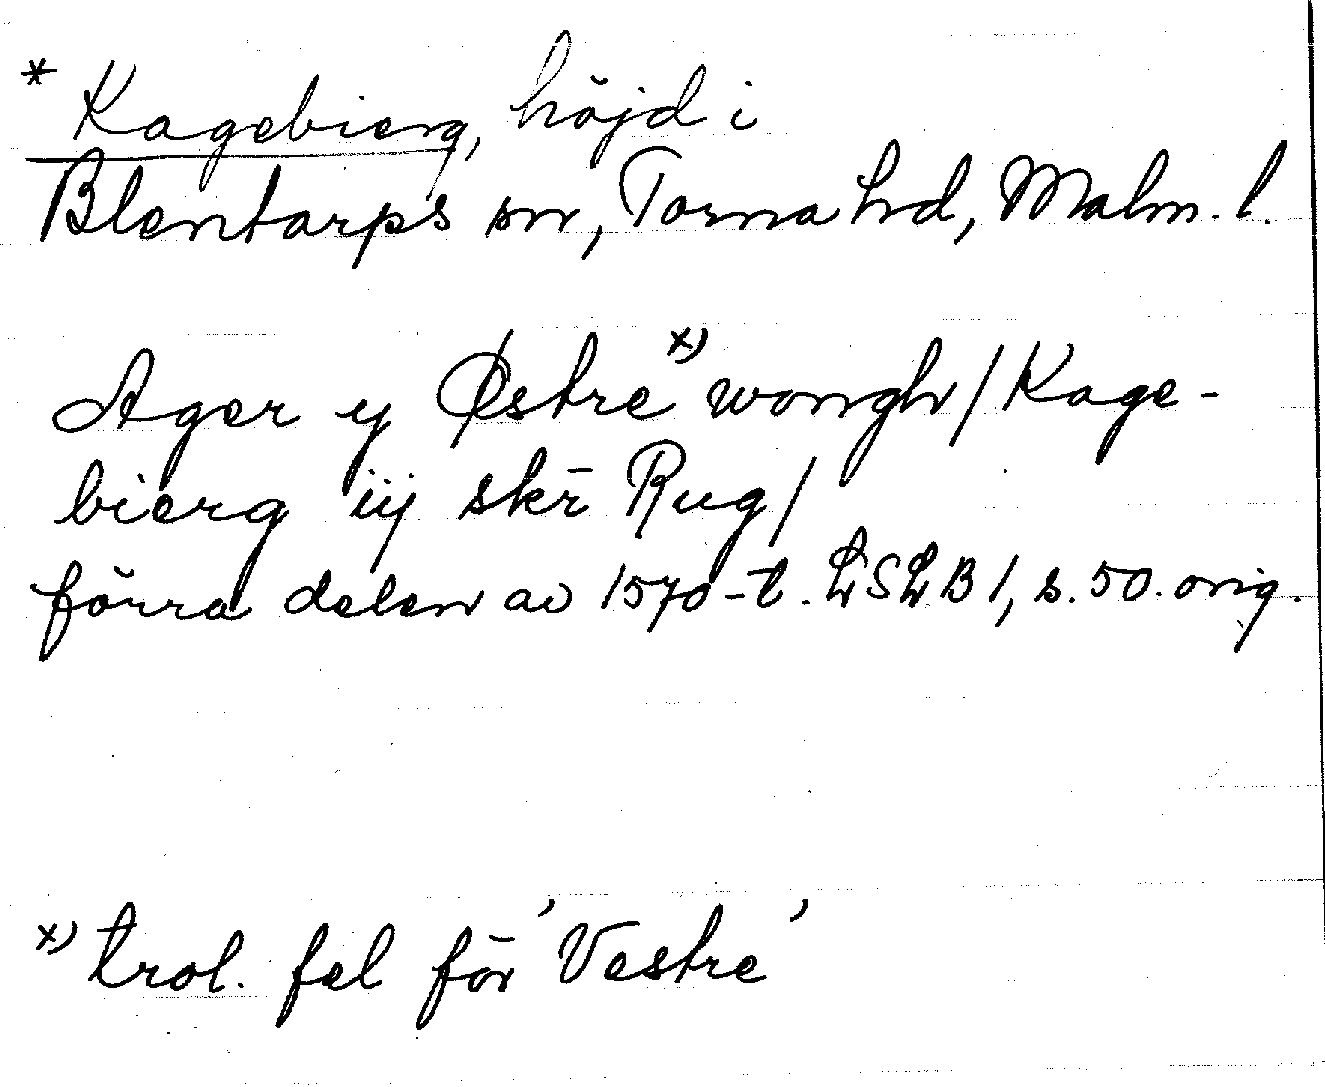 * Kagebierg, höjd i
Blentarps sn, Torna hd, Malm. l.
Ager y Østre x) wongh / Kage-
bierg iij skr̄ Rug /
förra delen av 1570-t. LSLB 1, s. 50. orig.
x) trol. fel för 'Vestre'